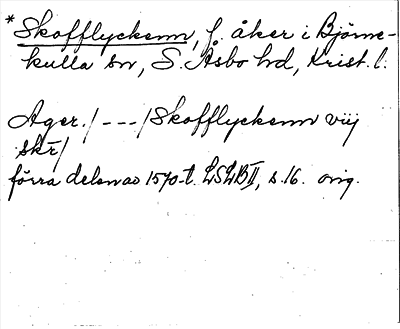 *Skofflyckenn, f. åker i Björne-
kulla sn, S. Åsbo hd, Krist. l.
Ager./---/Skofflyckenn viij
skr/
förra delen av 1570-t. LSLB II, s. 16. orig.